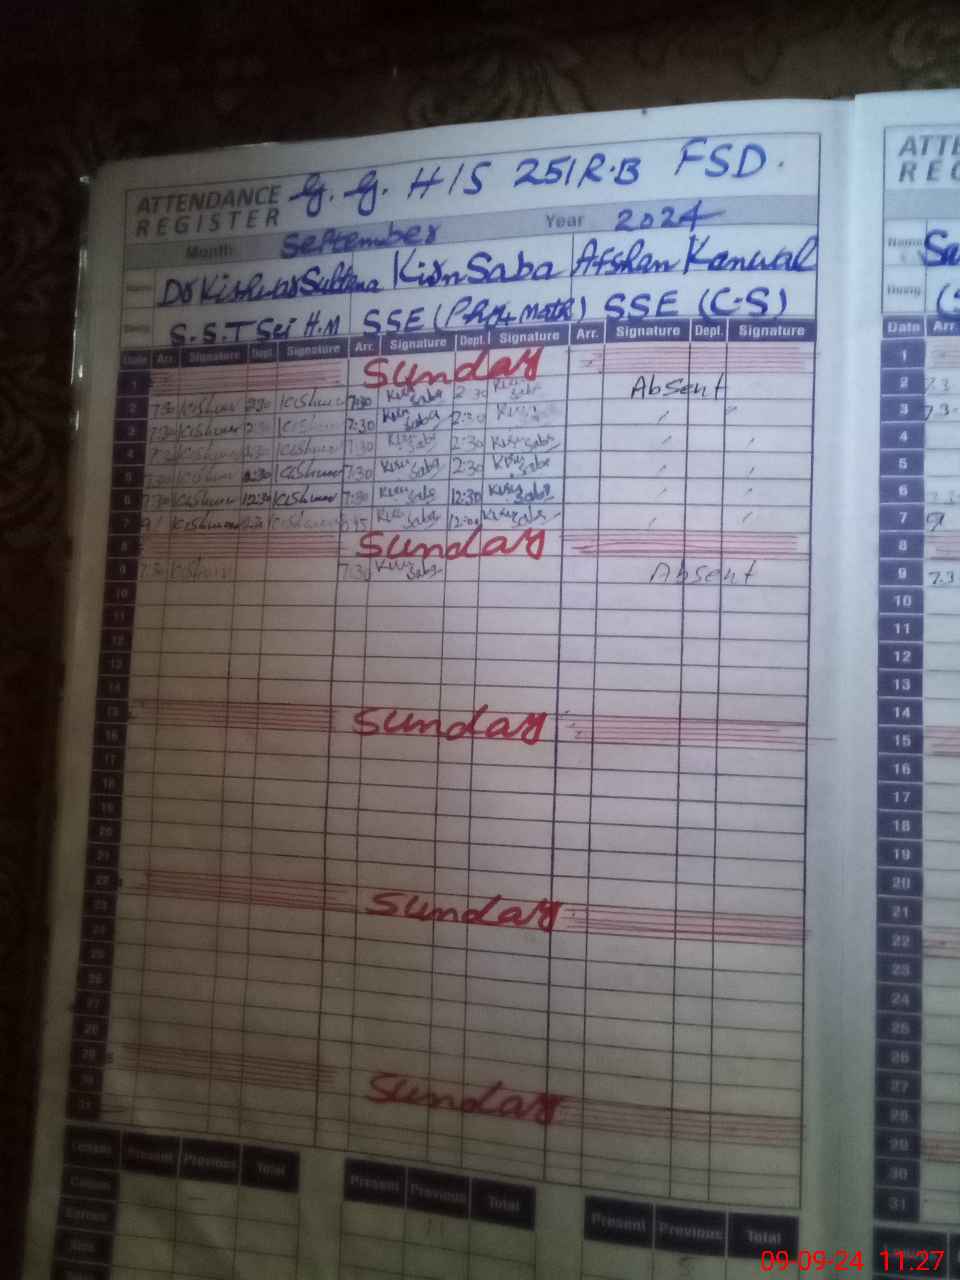 ATTENDANCE REGISTER G. G. H/S 251R.B FSD.
Month September Year 2024
Name Dr Kishwar Sultana Kiran Saba Afshan Kanwal
Desig. S.S.T Sci H.M SSE (Phy+Math) SSE (C-S)
Date Arr. Signature Dept. Signature Arr. Signature Dept. Signature Arr. Signature Dept. Signature
1 Sunday
2 7:30 Kishwar 2:30 Kishwar 7:30 Kiran Saba 2:30 Kiran Saba Absent
3 7:30 Kishwar 2:30 Kishwar 7:30 Kiran Saba 2:30 〃
4 7:30 Kishwar 2:30 Kishwar 7:30 Kiran Saba 2:30 Kiran Saba
5 7:30 Kishwar 2:30 Kishwar 7:30 Kiran Saba 2:30 Kiran Saba
6 7:30 Kishwar 12:30 Kishwar 7:30 Kiran Saba 12:30 Kiran Saba
7 9 Kishwar Kishwar Kiran Saba 12:00 Kiran Saba
8 Sunday
9 7:30 Kishwar 7:30 Kiran Saba Absent
10
11
12
13
14
15 Sunday
16
17
18
19
20
21
22 Sunday
23
24
25
26
27
28
29 Sunday
30
31
Leaves Present Previous Total Present Previous Total Present Previous Total
Casual
Earned
Sick
ATTE
REG
Name Sa
Desig. (S
Date Arr.
1
2 7.3
3 7.3
4
5
6
7 9
8
9 7.3
10
11
12
13
14
15
16
17
18
19
20
21
22
23
24
25
26
27
28
29
30
31
09-09-24 11:27